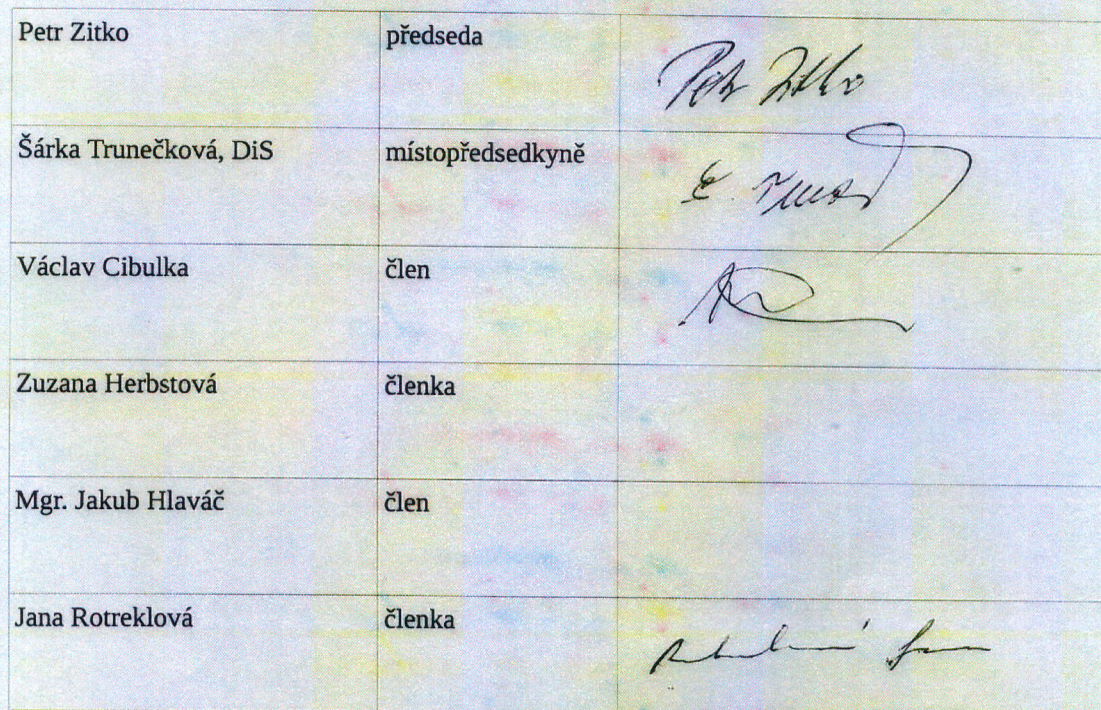 Petr Zitko předseda Petr Zitko
Šárka Trunečková, DiS místopředsedkyně
Václav Cibulka člen
Zuzana Herbstová členka
Mgr. Jakub Hlaváč člen
Jana Rotreklová členka